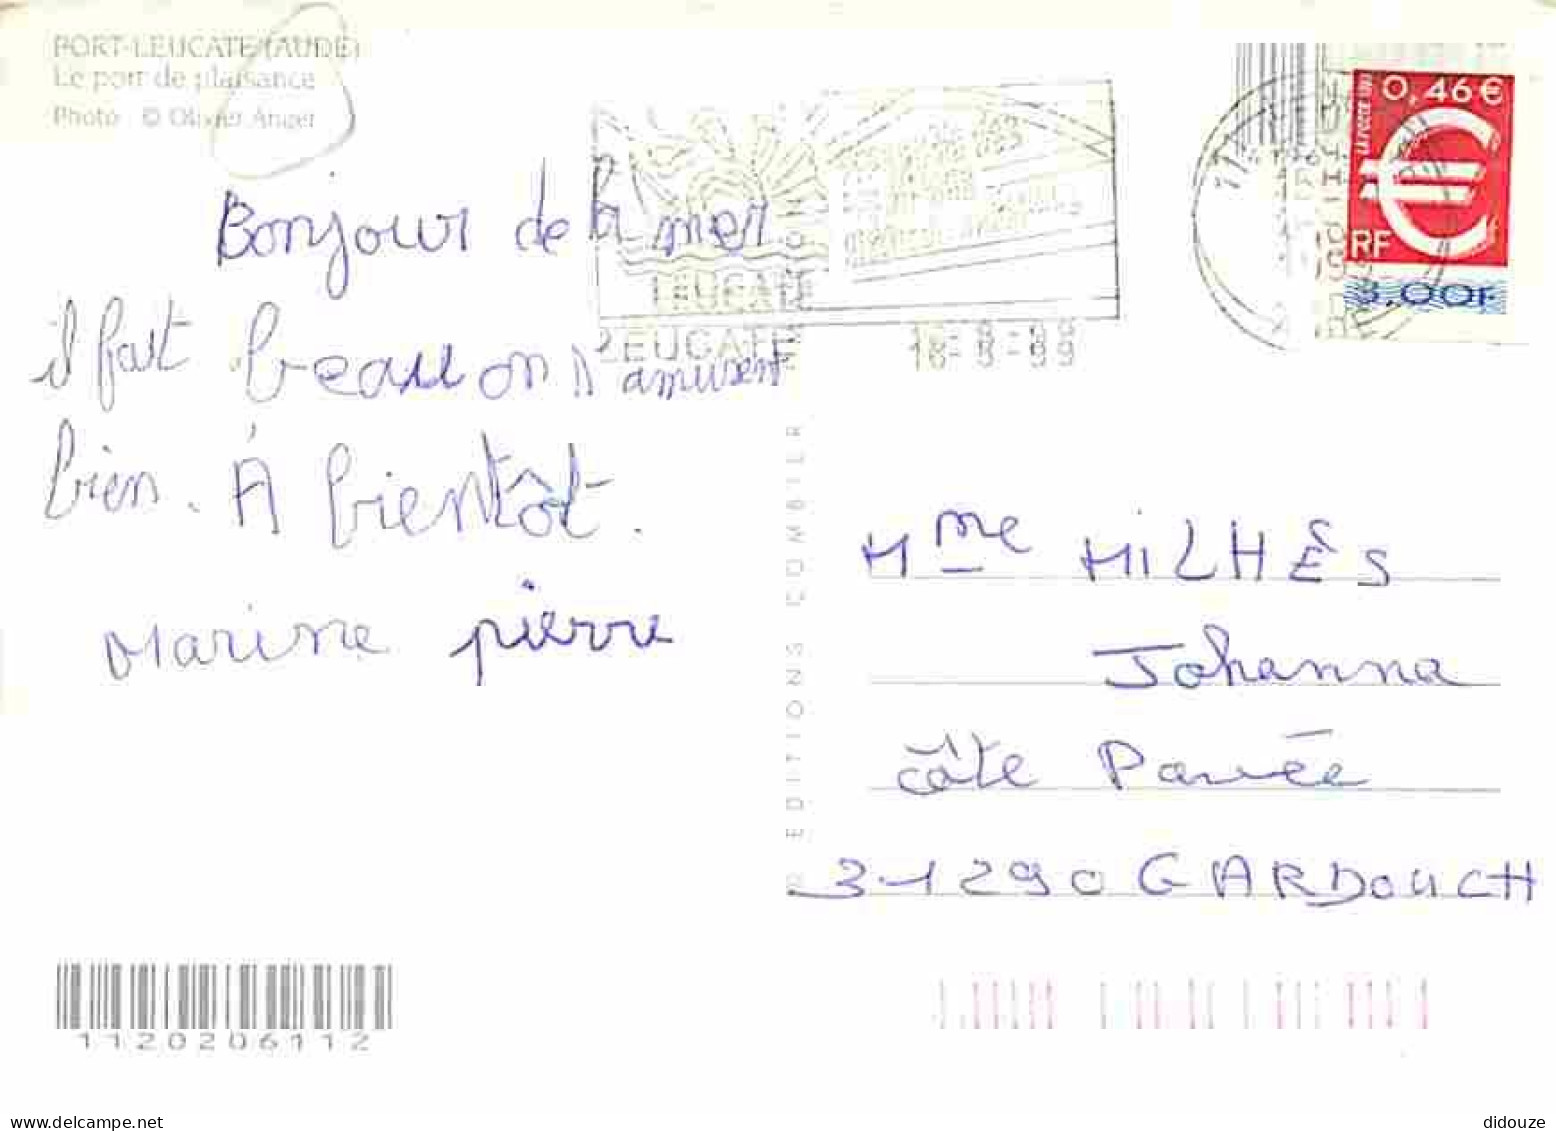 PORT-LEUCATE (AUDE)
Le port de plaisance
Photo : © Olivier Anger
0,46 €
LA POSTE 1999
RF
3,00F
LEUCATE
LEUCATE
Bonjour de la mer
il fait beau on s'amusent
bien. À bientôt.
Marine pierre
EDITIONS COMBIER
Mme MILHÊS
Johanna
côte Pavée
31290 GARDOUCH
1120206112
delcampe.net
didouze